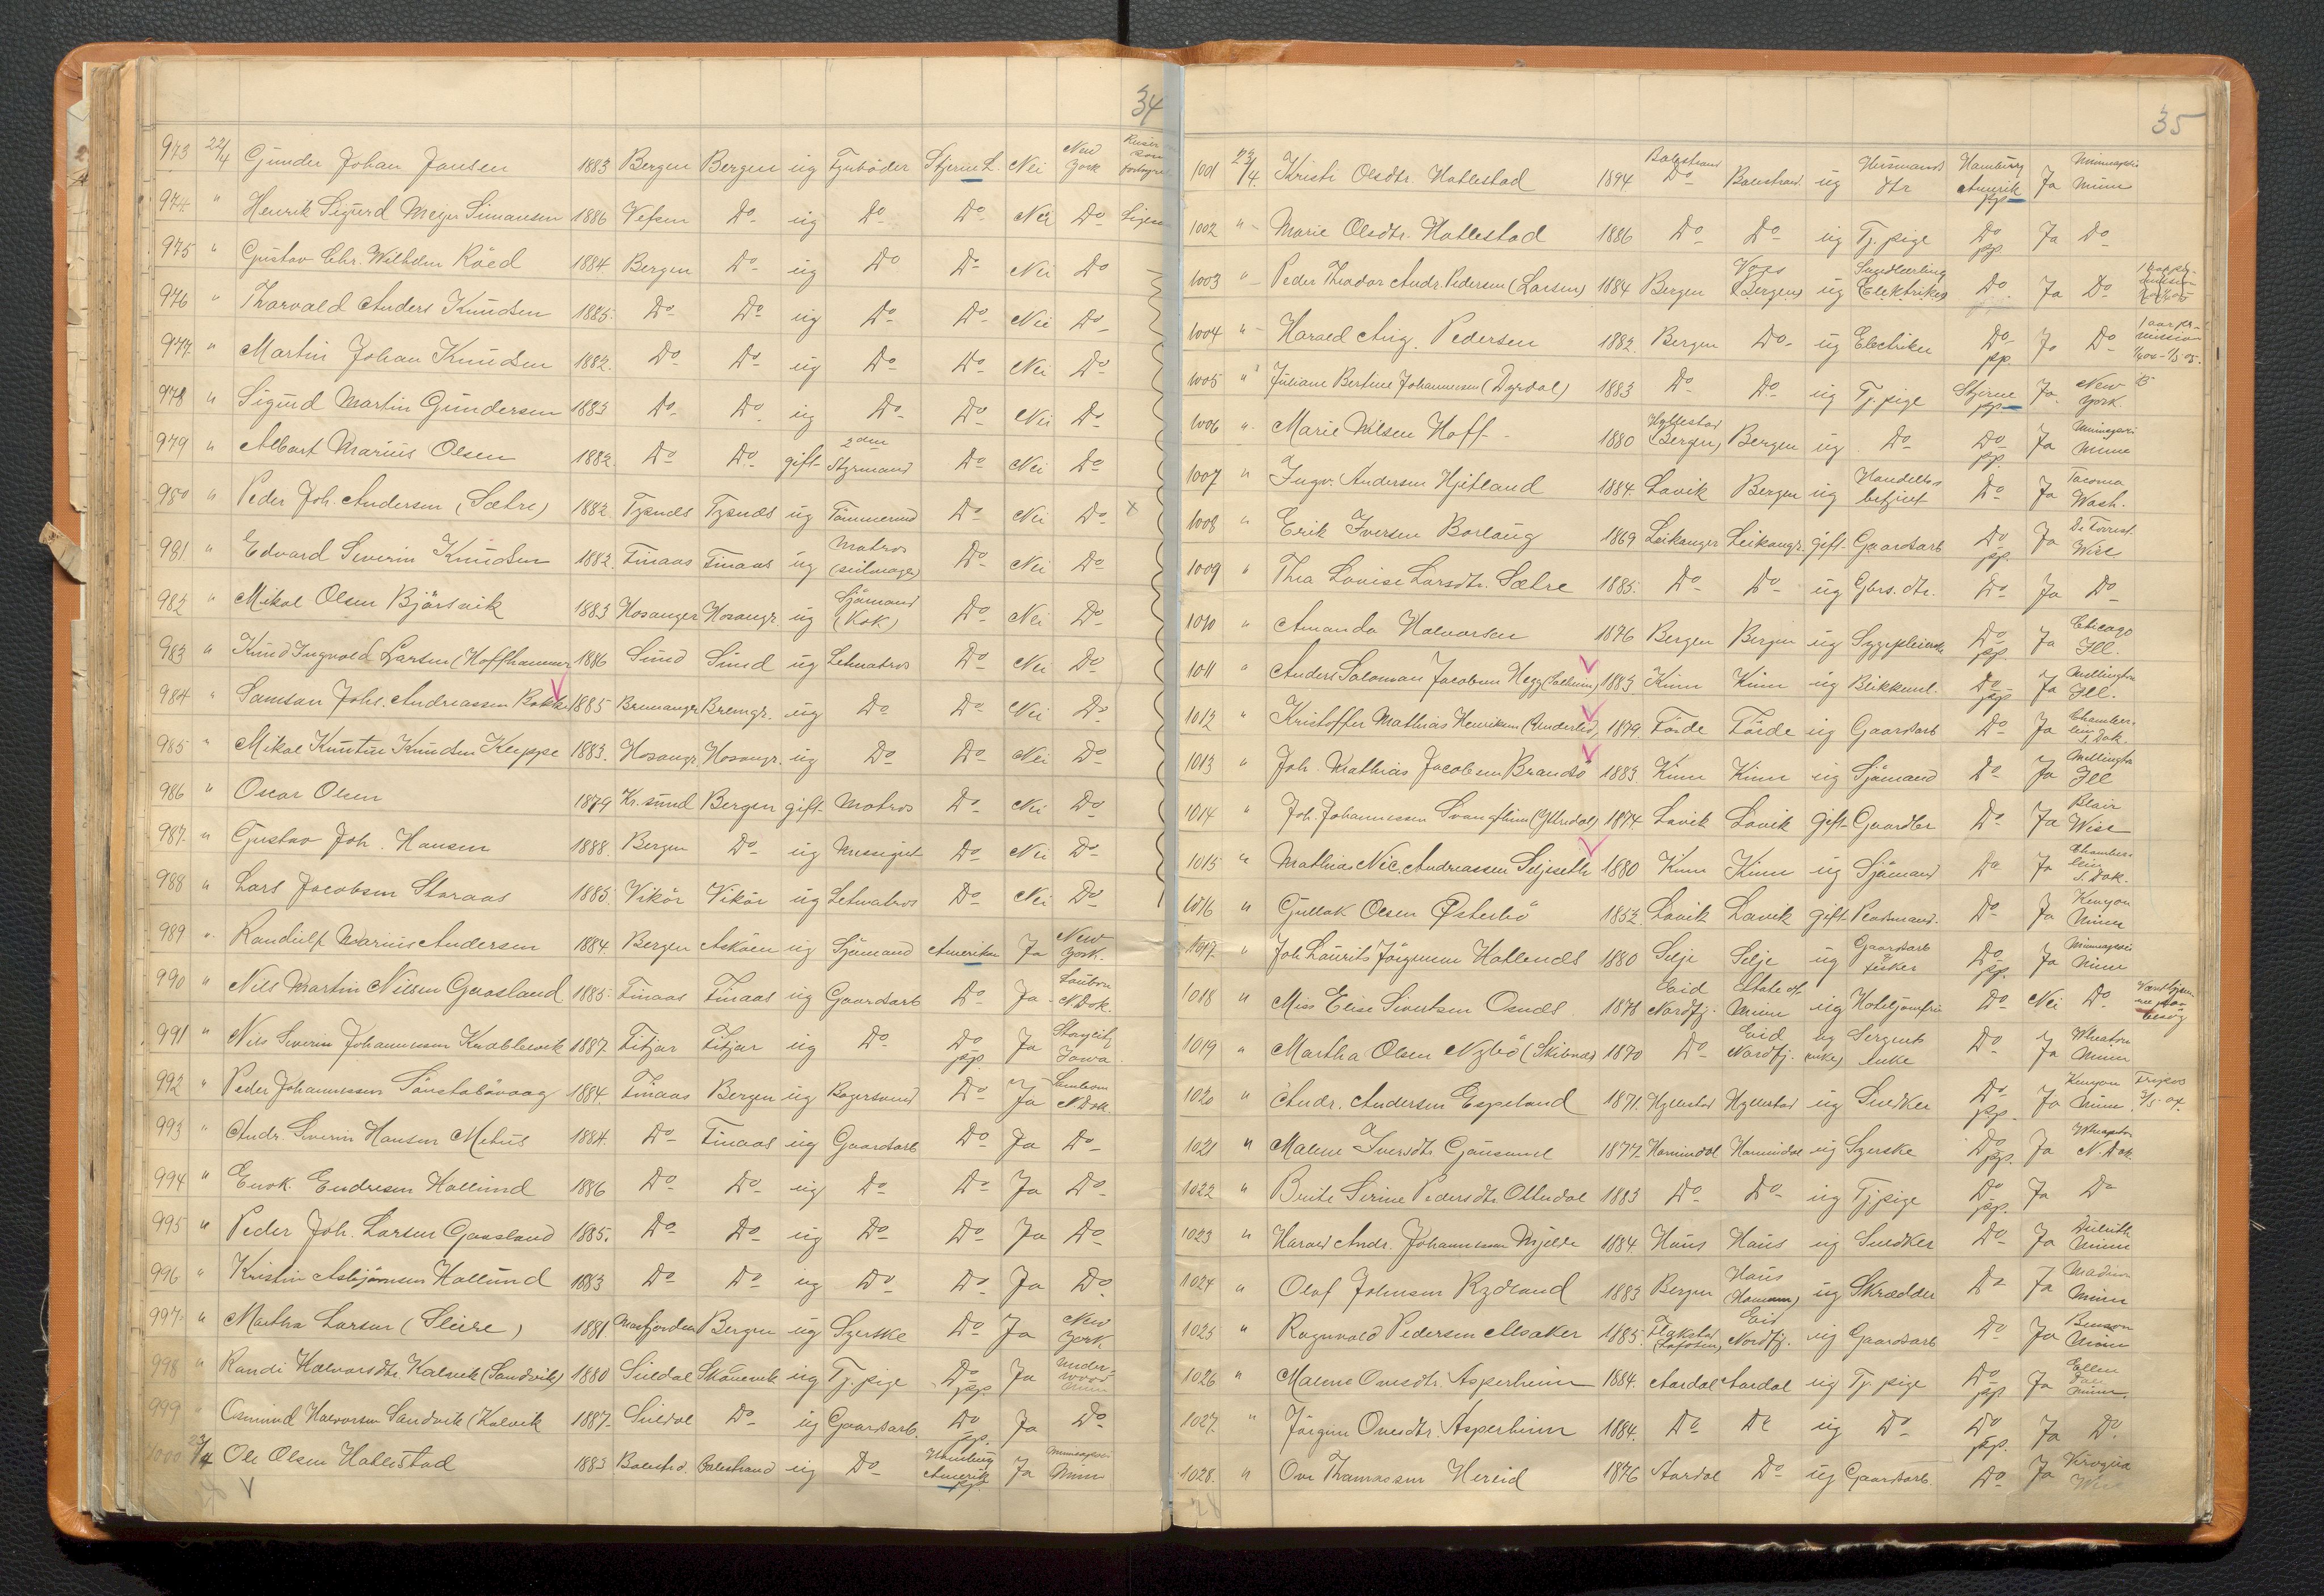 34
973 22/4 Gunder Johan Jansen 1883 Bergen Bergen ug Fyrböder Stjerne L. Nei New York
974 " Henrik Sigurd Meyer Simonsen 1886 Vefsen Do ug Do Do Nei Do
975 " Gustav Chr. Wilhelm Röed 1884. Bergen Do ug Do Do Nei Do
976 " Thorvald Anders Knudsen 1885. Do Do ug Do Do Nei Do
977. " Martin Johan Knudsen 1882. Do Do ug Do Do Nei Do
978 " Sigurd Martin Gundersen 1883 Do Do ug Do Do Nei Do
979 " Albart Marius Olsen 1882. Do Do gift 2den Styrmand Do Nei Do
980 " Peder Joh. Andersen (Sætre) 1882 Tysnæs Tysnæs ug Tömmermd Do Nei Do x
981 " Edvard Severin Knudsen 1882. Finaas Finaas ug Matros (seilmager) Do Nei Do
982 " Mikal Olsen Bjørsvik 1883 Hosanger Hosangr. ug Sjömand (Kok) Do Nei Do
983 " Knud Ingvald Larsen (Hoffhammer 1886 Sund Sund ug Letmatros Do Nei Do
984 " Samson Johs. Andreassen 1885 Bremanger Bremgr. ug Do Do Nei Do
985 " Mikal Knutsen Knudsen Keppe 1883. Hosangr. Hosangr. ug Do Do Nei Do
986 " Oscar Olsen 1879 Kr.sund Bergen gift Matros Do Nei Do
987. " Gustav Joh. Hansen 1888. Bergen Do ug Messegut Do Nei Do
988 " Lars Jacobsen Storaas 1885. Vikör Vikör ug Letmatros Do Nei Do
989 " Randulf Marius Andersen 1884. Bergen Asköen ug Sjömand Amerika Ja New York.
990 " Nils Martin Nilsen Gaasland 1885. Finaas Finaas ug Gaardsarb Do Ja N Dak.
991 " Nils Severin Johannessen 1887. Fitjar Fitjar ug Do Do pp. Ja Story City Iowa
992 " Peder Johannessen Sönstabövaag 1884. Finaas Bergen ug Bagersvend Do Ja N Dak.
993 " Andr. Severin Hansen Mehus 1884. Do Finaas ug Gaardsarb Do Ja Do
994 " Enok. Endresen Hallund 1886 Do Do ug Do Do Ja Do
995 " Peder Joh. Larsen Gaasland 1885. Do Do ug Do Do Ja Do
996 " Kristin Asbjörnsen Hallund 1883 Do Do ug Do Do Ja Do
997. " Martha Larsen (Sleire) 1881. Masfjorden Bergen ug Syerske Do Ja New York.
998 " Randi Halvorsdtr. Kalvik (Sandvik) 1880 Suldal Skånevik ug Tj. pige Do pp. Ja Underwood Minn
999 " Osmund Halvorsen Sandvik (Kalvik 1887. Suldal Do ug Gaardsarb. Do pp. Ja Do
1000 23/4 Ole Olsen Hatlestad 1883 Balestrd. Balestrand ug Do Hamburg Amerik pp. Ja Minneapolis Minn
35
1001 23/4. Kristi Olsdtr. Hatlestad 1894 Balestrand Do Balestrand. ug Husmands dtr Hamburg Amerik pp. Ja Minneapolis Minn
1002 " Marie Olsdtr. Hatlestad 1886 Do Do ug Tj. pige Do pp. Ja Do
1003 " Peder Theodor Andr. Pedersen (Larsen) 1884 Bergen Voss (Bergen) ug Elektriker Do Ja Do
1004 " Harald Aug. Pedersen 1882. Bergen Do ug Electriker Do pp. Ja Do 1 aar permission
1005 " Juliane Bertine Johannessen (Dyrdal) 1883 Do Do ug Tj. pige Stjerne pp. Ja. New York.
1006 " Marie Nilsen Hoff 1880 Hyllestad (Bergen) Bergen ug Do Do pp. Ja Minneapolis Minn
1007 " Ingv. Andersen Hjetland 1884. Lavik Bergen ug Handelsbetjent Do Ja Tacoma Wash.
1008 " Erik Iversen Borlaug 1869 Leikanger Leikangr. gift Gaardsarb Do pp. Ja De Forrest Wisc
1009 " Thea Lovise Larsdtr. Sælre 1885. Do Do ug Gbrs. dtr. Do Ja Do
1010 " Amanda Halvorsen 1876 Bergen Bergen ug Sygepleierske Do pp. Ja Chicago Ill.
1011 " Anders Salomon Jacobsen Hegg (Solheim) 1883 Kinn Kinn ug Blikkensl. Do pp. Ja Millington Ill.
1012 " Kristoffer Matthias Henriksen (Underlid) 1879. Förde Förde ug Gaardsarb Do Ja Chamberlein S. Dak.
1013 " Joh. Mathias Jacobsen Brandsö 1883 Kinn Kinn ug Sjömand Do Ja Millington Ill
1014 " Joh. Johannessen Svangtun (Ytredal) 1874. Lavik Lavik gift Gaardbr Do Ja Blair Wisc
1015 " Mathias Nic. Andreassen Seljeseth 1880 Kinn Kinn ug Sjömand Do Ja Chamberlein S. Dak.
1016 " Gullak Olsen Østerbö 1852. Lavik Lavik gift Pladsmand. Do Ja Kenyon Minn
1017. " Joh Laurits Jörgensen Hatlenæs 1880 Selje Selje ug Gaardsarb & fisker Do pp. Ja Minneapolis Minn
1018 " Miss Elise Sivertsen Osnæs 1878 Eid Nordfj. State of Minn ug Hoteljomfru Do Nei Do besög
1019 " Martha Olsen Nybö (Skibnæs) 1870 Do Eid Nordfj. ug (enke) Sergents enke Do Ja Wheaton Minn
1020 " Andr. Andersen Espeland 1871. Hyllestad Hyllestad ug Snedker Do pp. Ja Kenyon Minn. Fripas 2/5-04.
1021 " Malene Iversdtr. 1877. Hornindal Hornindal ug Syerske Do pp. Ja N. Dak.
1022 " Brite Serine Pedersdtr Otterdal 1883 Do Do ug Tj.pige Do pp. Ja Do
1023 " Harald Andr. Johannessen Mjelde 1884. Haus Haus ug Snedker Do Ja Duluth Minn
1024 " Olaf Johnsen Rydland 1883 Bergen Haus (Hamre) ug Skrædder Do Ja Madison Minn
1025 " Ragnvald Pedersen Alsaker 1885. Flakstad (Lofoten) Eid Nordfj. ug Gaardsarb Do Ja Benson Minn
1026 " Malene Ovesdtr. Asperheim 1884. Aardal Aardal ug Tj. pige Do pp. Ja Ellen Minn.
1027. " Jörgine Ovesdtr. Asperheim 1884. Do Do ug Do Do pp. Ja Do
1028. " Ove Thomassen Hereid 1876 Aardal Do ug Gaardsarb. Do Ja Wis